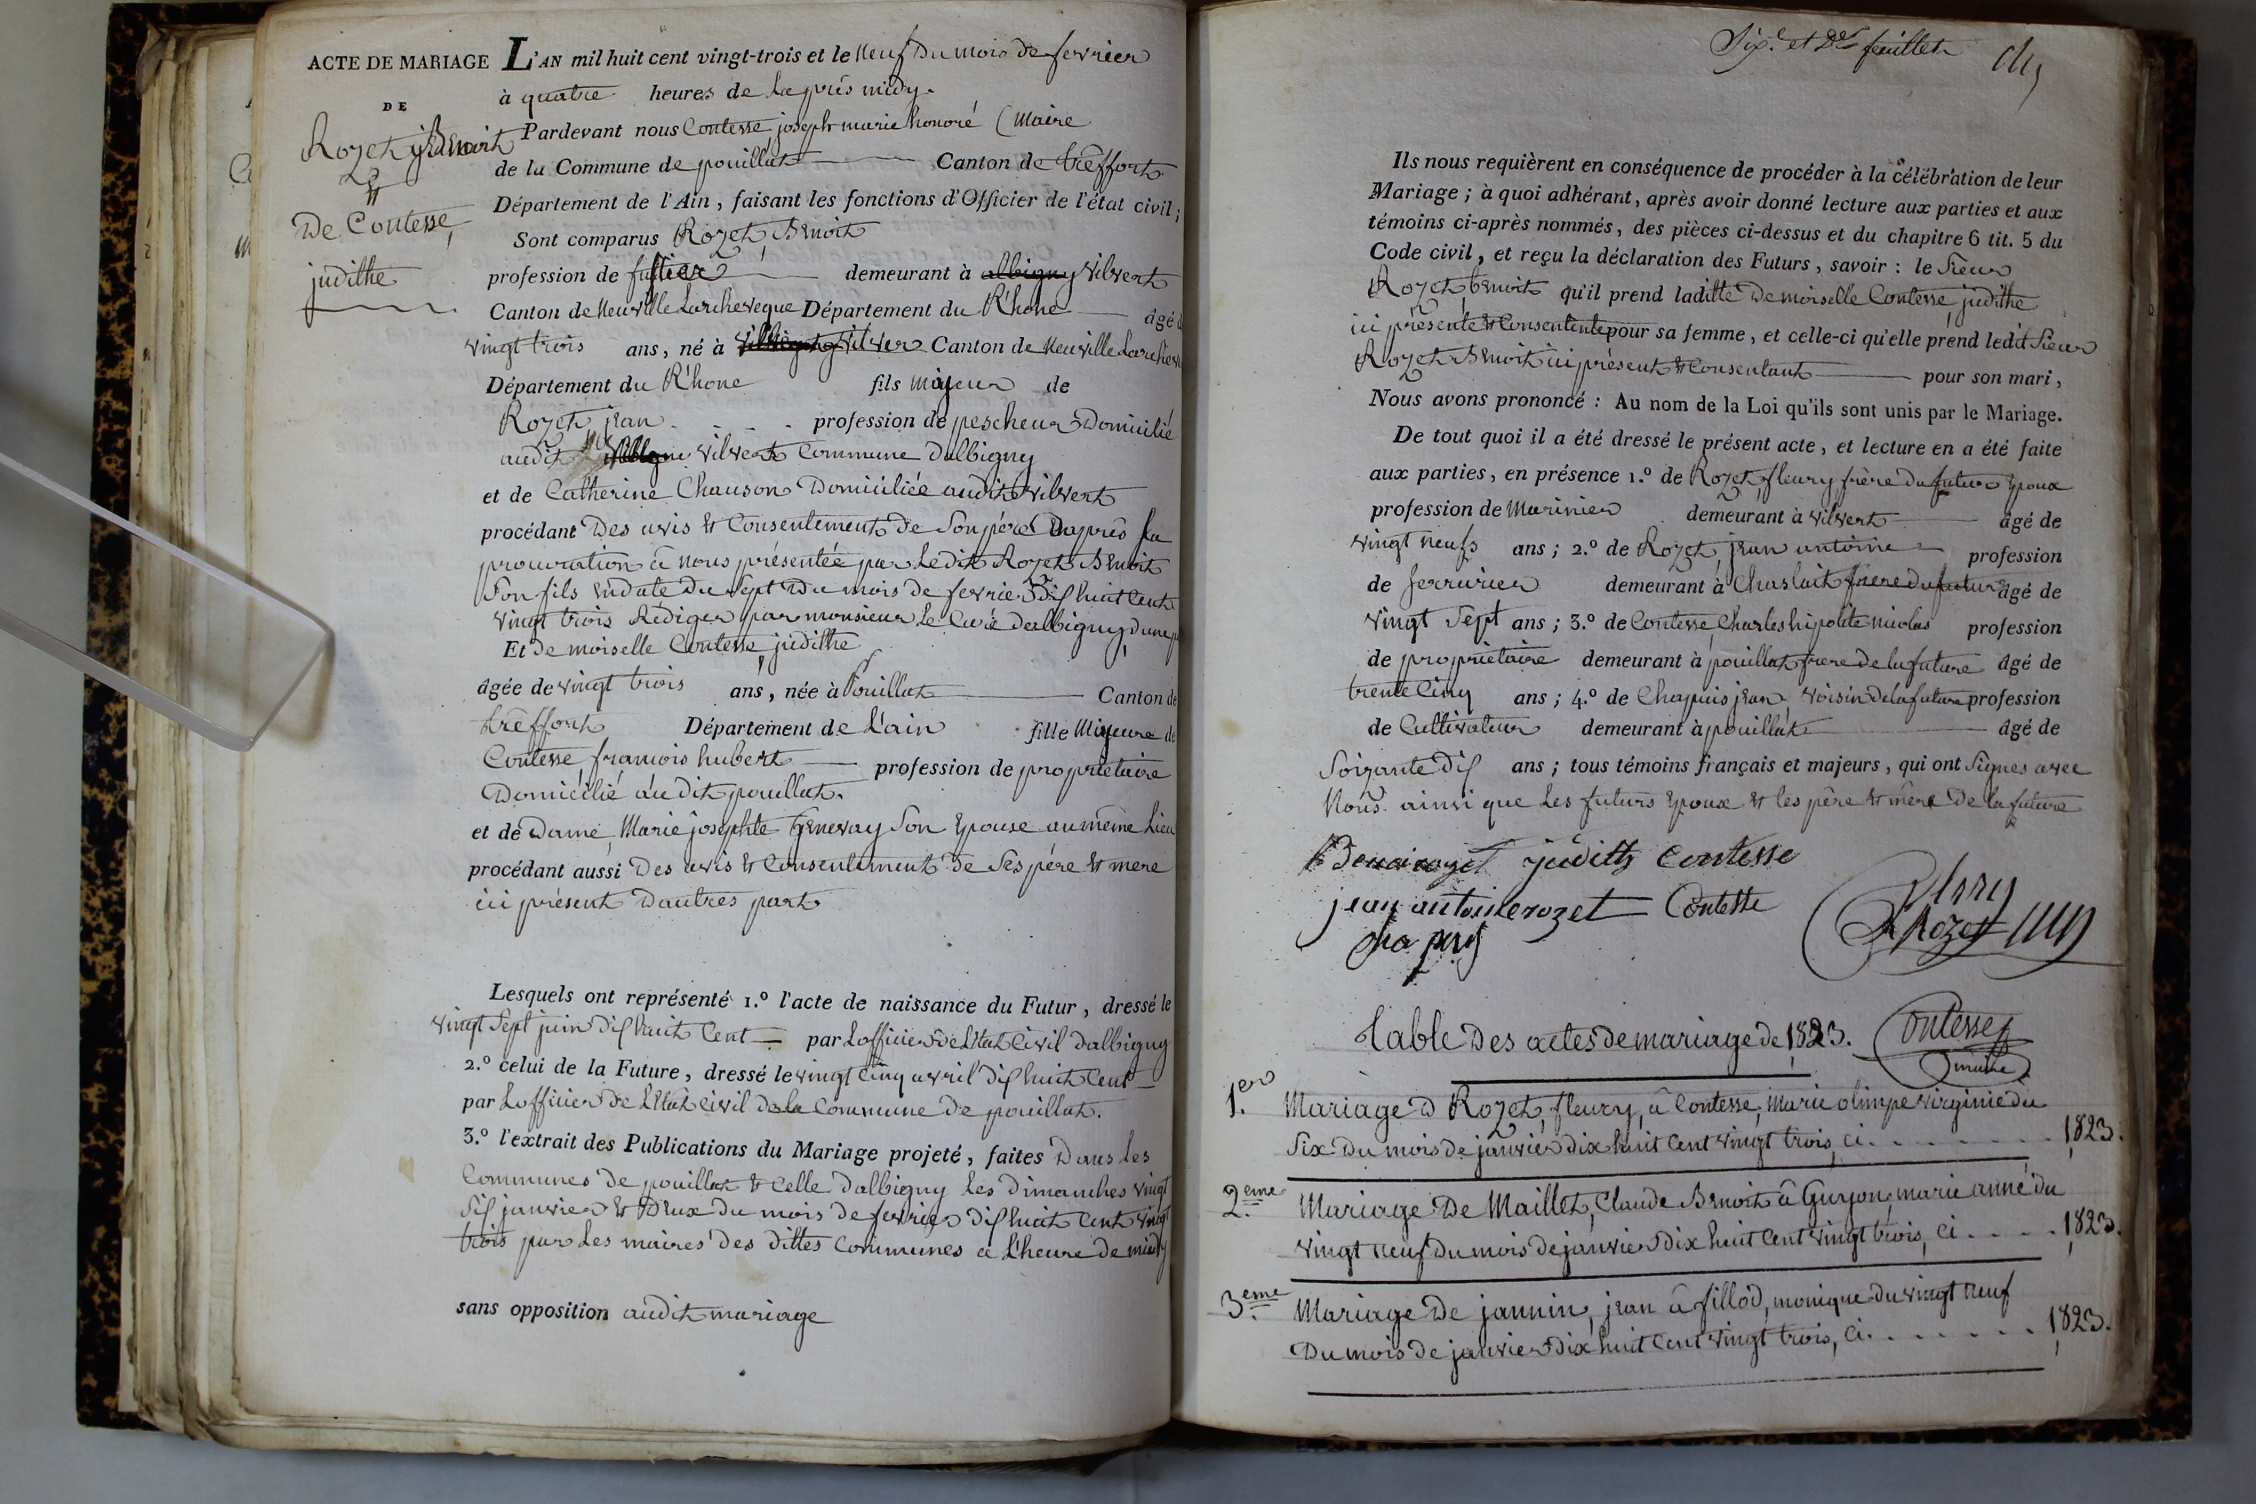 ACTE DE MARIAGE
DE
Rozet, Benoit
et
De Contesse,
judithe
L'AN mil huit cent vingt-trois et le neuf Du mois de fevrier
à quatre heures de Laprès midy.
Pardevant nous Contesse joseph marie honoré Maire
de la Commune de pouillat Canton de trêffort
Département de l'Ain, faisant les fonctions d'Officier de l'état civil;
Sont comparus Rozet, Benoit
profession de demeurant à albigny vilvert
Canton de Neuville Larcheveque Département du R'hone âgé
vingt trois ans, né à vilver Canton de Neuville Larcheve
Département du R'hone fils majeur de
Rozet jean profession de pescheur Domicilié
audit vilvert Commune Dalbigny
et de Catherine Chauson Domiciliée audit vilvert
procédant Des avis et Consentement de Son père Daprès La
procuration à nous présentée par Ledit Rozet Benoit
Son fils en date du Sept Du mois de fevrier dix huit Cent
vingt trois Rediger par monsieur Le Curé Dalbigny, dune p
Et De moiselle Contesse, judithe
âgée de vingt trois ans, née à Pouillat Canton de
trêffort Département de L'ain fille Majeure de
Contesse françois hubert profession de propriètaire
Domicilié au dit pouillat.
et de Dame Marie josephte Genevay Son Epouse au même Lieu
procédant aussi Des avis et Consentement de Ses père et mere
ici présent D'autres part
Lesquels ont représenté 1.º l'acte de naissance du Futur, dressé le
vingt Sept juin dix huit Cent par Lofficier de L'Etat Civil Dalbigny
2.º celui de la Future, dressé le vingt Cinq avril dix huit Cent
par Lofficier de L'Etat Civil de la Commune de pouillat.
3.º l'extrait des Publications du Mariage projeté, faites Dans Les
Communes de pouillat et Celle Dalbigny Les Dimanches vingt
Six janvier et Deux du mois de fevrier dix huit Cent vingt
trois par Les maires Des dittes Communes à L'heure de midy
sans opposition audit mariage
feuillet
Ils nous requièrent en conséquence de procéder à la célébration de leur
Mariage; à quoi adhérant, après avoir donné lecture aux parties et aux
témoins ci-après nommés, des pièces ci-dessus et du chapitre 6 tit. 5 du
Code civil, et reçu la déclaration des Futurs, savoir: le Sieur
Rozet, benoit qu'il prend laditte Demoiselle Contesse, judithe
ici présente et Consentente pour sa femme, et celle-ci qu'elle prend ledit Sieur
Rozet Benoit ici présent et Consentant pour son mari,
Nous avons prononcé: Au nom de la Loi qu'ils sont unis par le Mariage.
De tout quoi il a été dressé le présent acte, et lecture en a été faite
aux parties, en présence 1.º de Rozet, fleury frère du futur Epoux
profession de Marinier demeurant à vilvert âgé de
vingt neufs ans; 2.º de Rozet, jean antoine profession
de Serrurier demeurant à frere du futur âgé de
vingt Sept ans; 3.º de Contesse, Charles hipolite nicolas profession
de propriètaire demeurant à pouillat frere de la future âgé de
trente Cinq ans; 4.º de Chapuis jean, voisin de la future profession
de Cultivateur demeurant à pouillat âgé de
Soixante dix ans; tous témoins français et majeurs, qui ont Signés avec
Nous ainsi que Les futurs Epoux et les père et mère De la future
Benoi rozet judith contesse
jean antoine rozet Contesse
chapuis Rozet
Table Des actes de mariage de 1823. Contesse
maire
1.er Mariage D Rozet, fleury, â Contesse, Marie olimpe virginie du
Six Du mois de janvier dix huit Cent vingt trois, Ci . . . . . . . . 1823.
2.eme Mariage De Maillet, Claude Benoit â Guyon, marie anne du
vingt neuf Du mois de janvier dix huit Cent vingt trois, Ci . . . . . 1823.
3.eme Mariage De jannin, jean â fillod, monique du vingt neuf
Du mois de janvier dix huit Cent vingt trois, Ci . . . . . . . 1823.